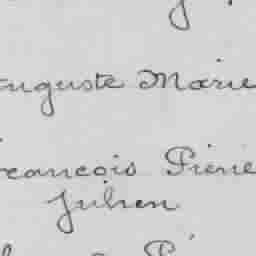 Auguste Marie
Francois Pierre
Julien